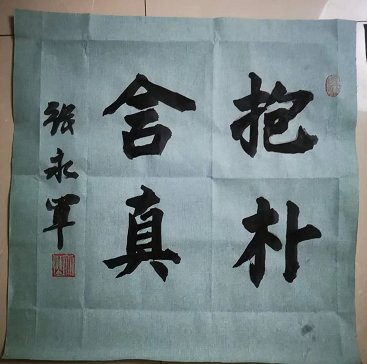 抱朴
含真
张永军